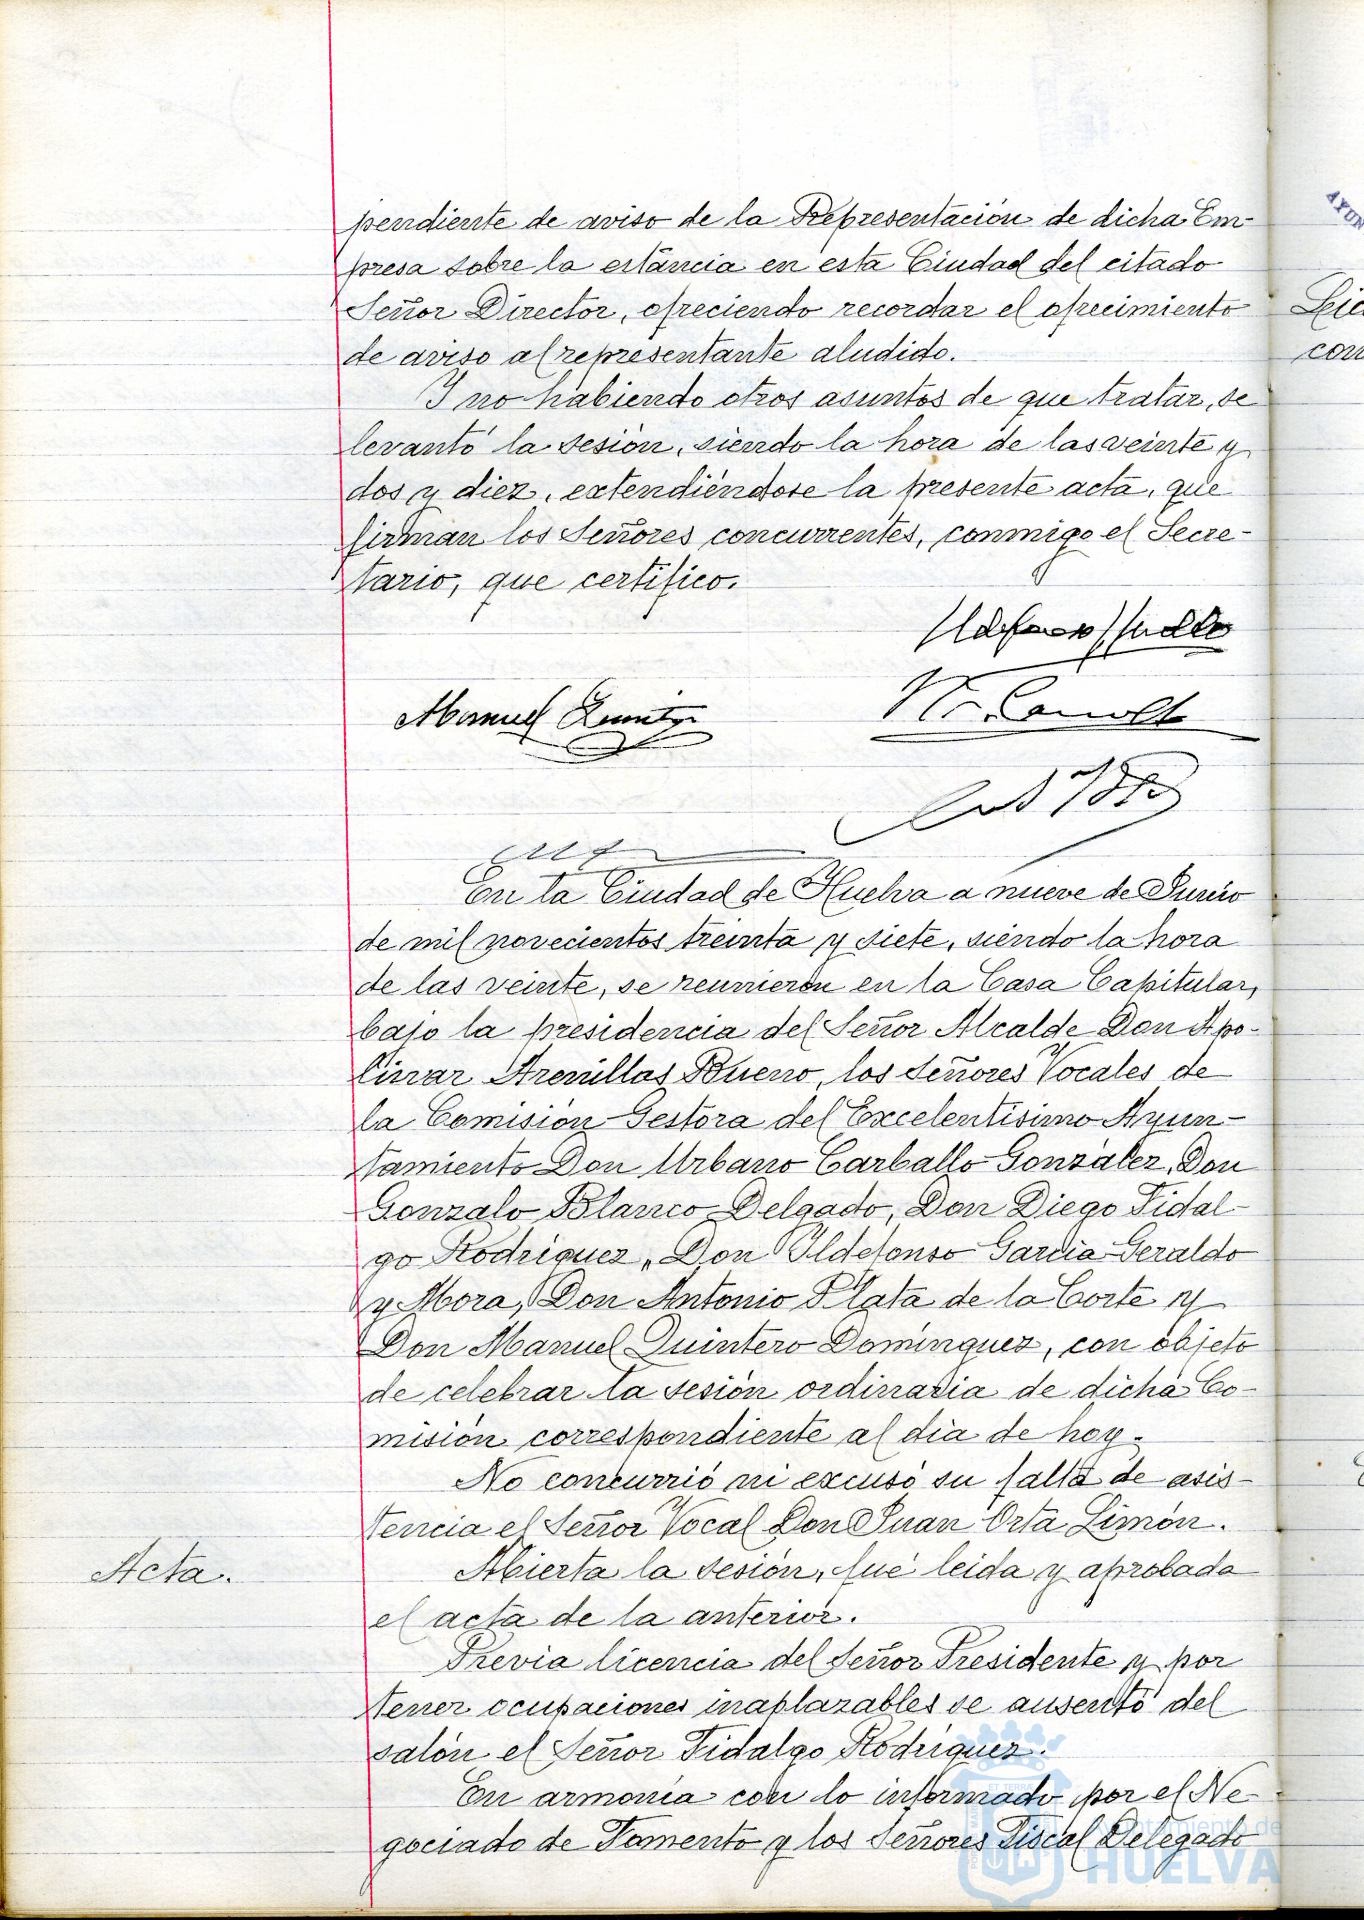 pendiente de aviso de la Representación de dicha Em-
presa sobre la estáncia en esta Ciudad del citado
Señor Director, ofreciendo recordar el ofrecimiento
de aviso al representante aludido.
Y no habiendo otros asuntos de que tratar, se
levantó la sesión, siendo la hora de las veinte y
dos y diez, extendiéndose la presente acta, que
firman los Señores concurrentes, conmigo el Secre-
tario, que certifico.
Manuel
En la Ciudad de Huelva a nueve de Junio
de mil novecientos treinta y siete, siendo la hora
de las veinte, se reunieron en la Casa Capitular,
bajo la presidencia del Señor Alcalde Don Apo-
linar Arenillas Bueno, los Señores Vocales de
la Comisión Gestora del Excelentísimo Ayun-
tamiento Don Urbano Carballo González, Don
Gonzalo Blanco Delgado, Don Diego Fidal-
go Rodríguez, Don Ildefonso García Geraldo
y Mora, Don Antonio Plata de la Corte y
Don Manuel Quintero Domínguez, con objeto
de celebrar la sesión ordinaria de dicha Co-
misión correspondiente al dia de hoy.
No concurrió ni excusó su falta de asis-
tencia el Señor Vocal Don Juan Orta Limón.
Acta.
Abierta la sesión, fué leida y aprobada
el acta de la anterior.
Previa licencia del Señor Presidente y por
tener ocupaciones inaplazables se ausentó del
salón el Señor Fidalgo Rodríguez.
En armonía con lo informado por el Ne-
gociado de Fomento y los Señores Fiscal Delegado
Ayuntamiento de
HUELVA